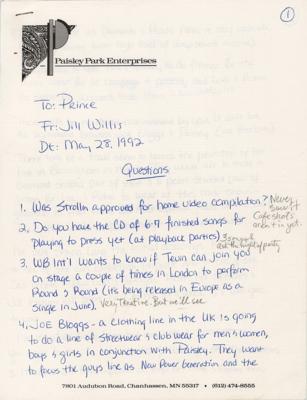 1
Paisley Park Enterprises
To: Prince
Fr: Jill Willis
Dt: May 28, 1992
Questions
1. Was Strollin approved for home video compilation? Never saw it
Cafe shots aren't in yet.
2. Do you have the CD of 6-7 finished songs for
playing to press yet (at playback parties)
3. WB Int'l wants to know if Tevin can join you
on stage a couple of times in London to perform
Round & Round (it's being released in Europe as a
single in June). Very Tentative. But we'll see
4. JOE Bloggs - a clothing line in the UK is going
to do a line of streetwear & clubwear for men & women,
boys & girls in conjunction with Paisley. They want
to focus the guys line as New Power Generation and the
7801 Audubon Road, Chanhassen, MN 55317 • (612) 474-8555